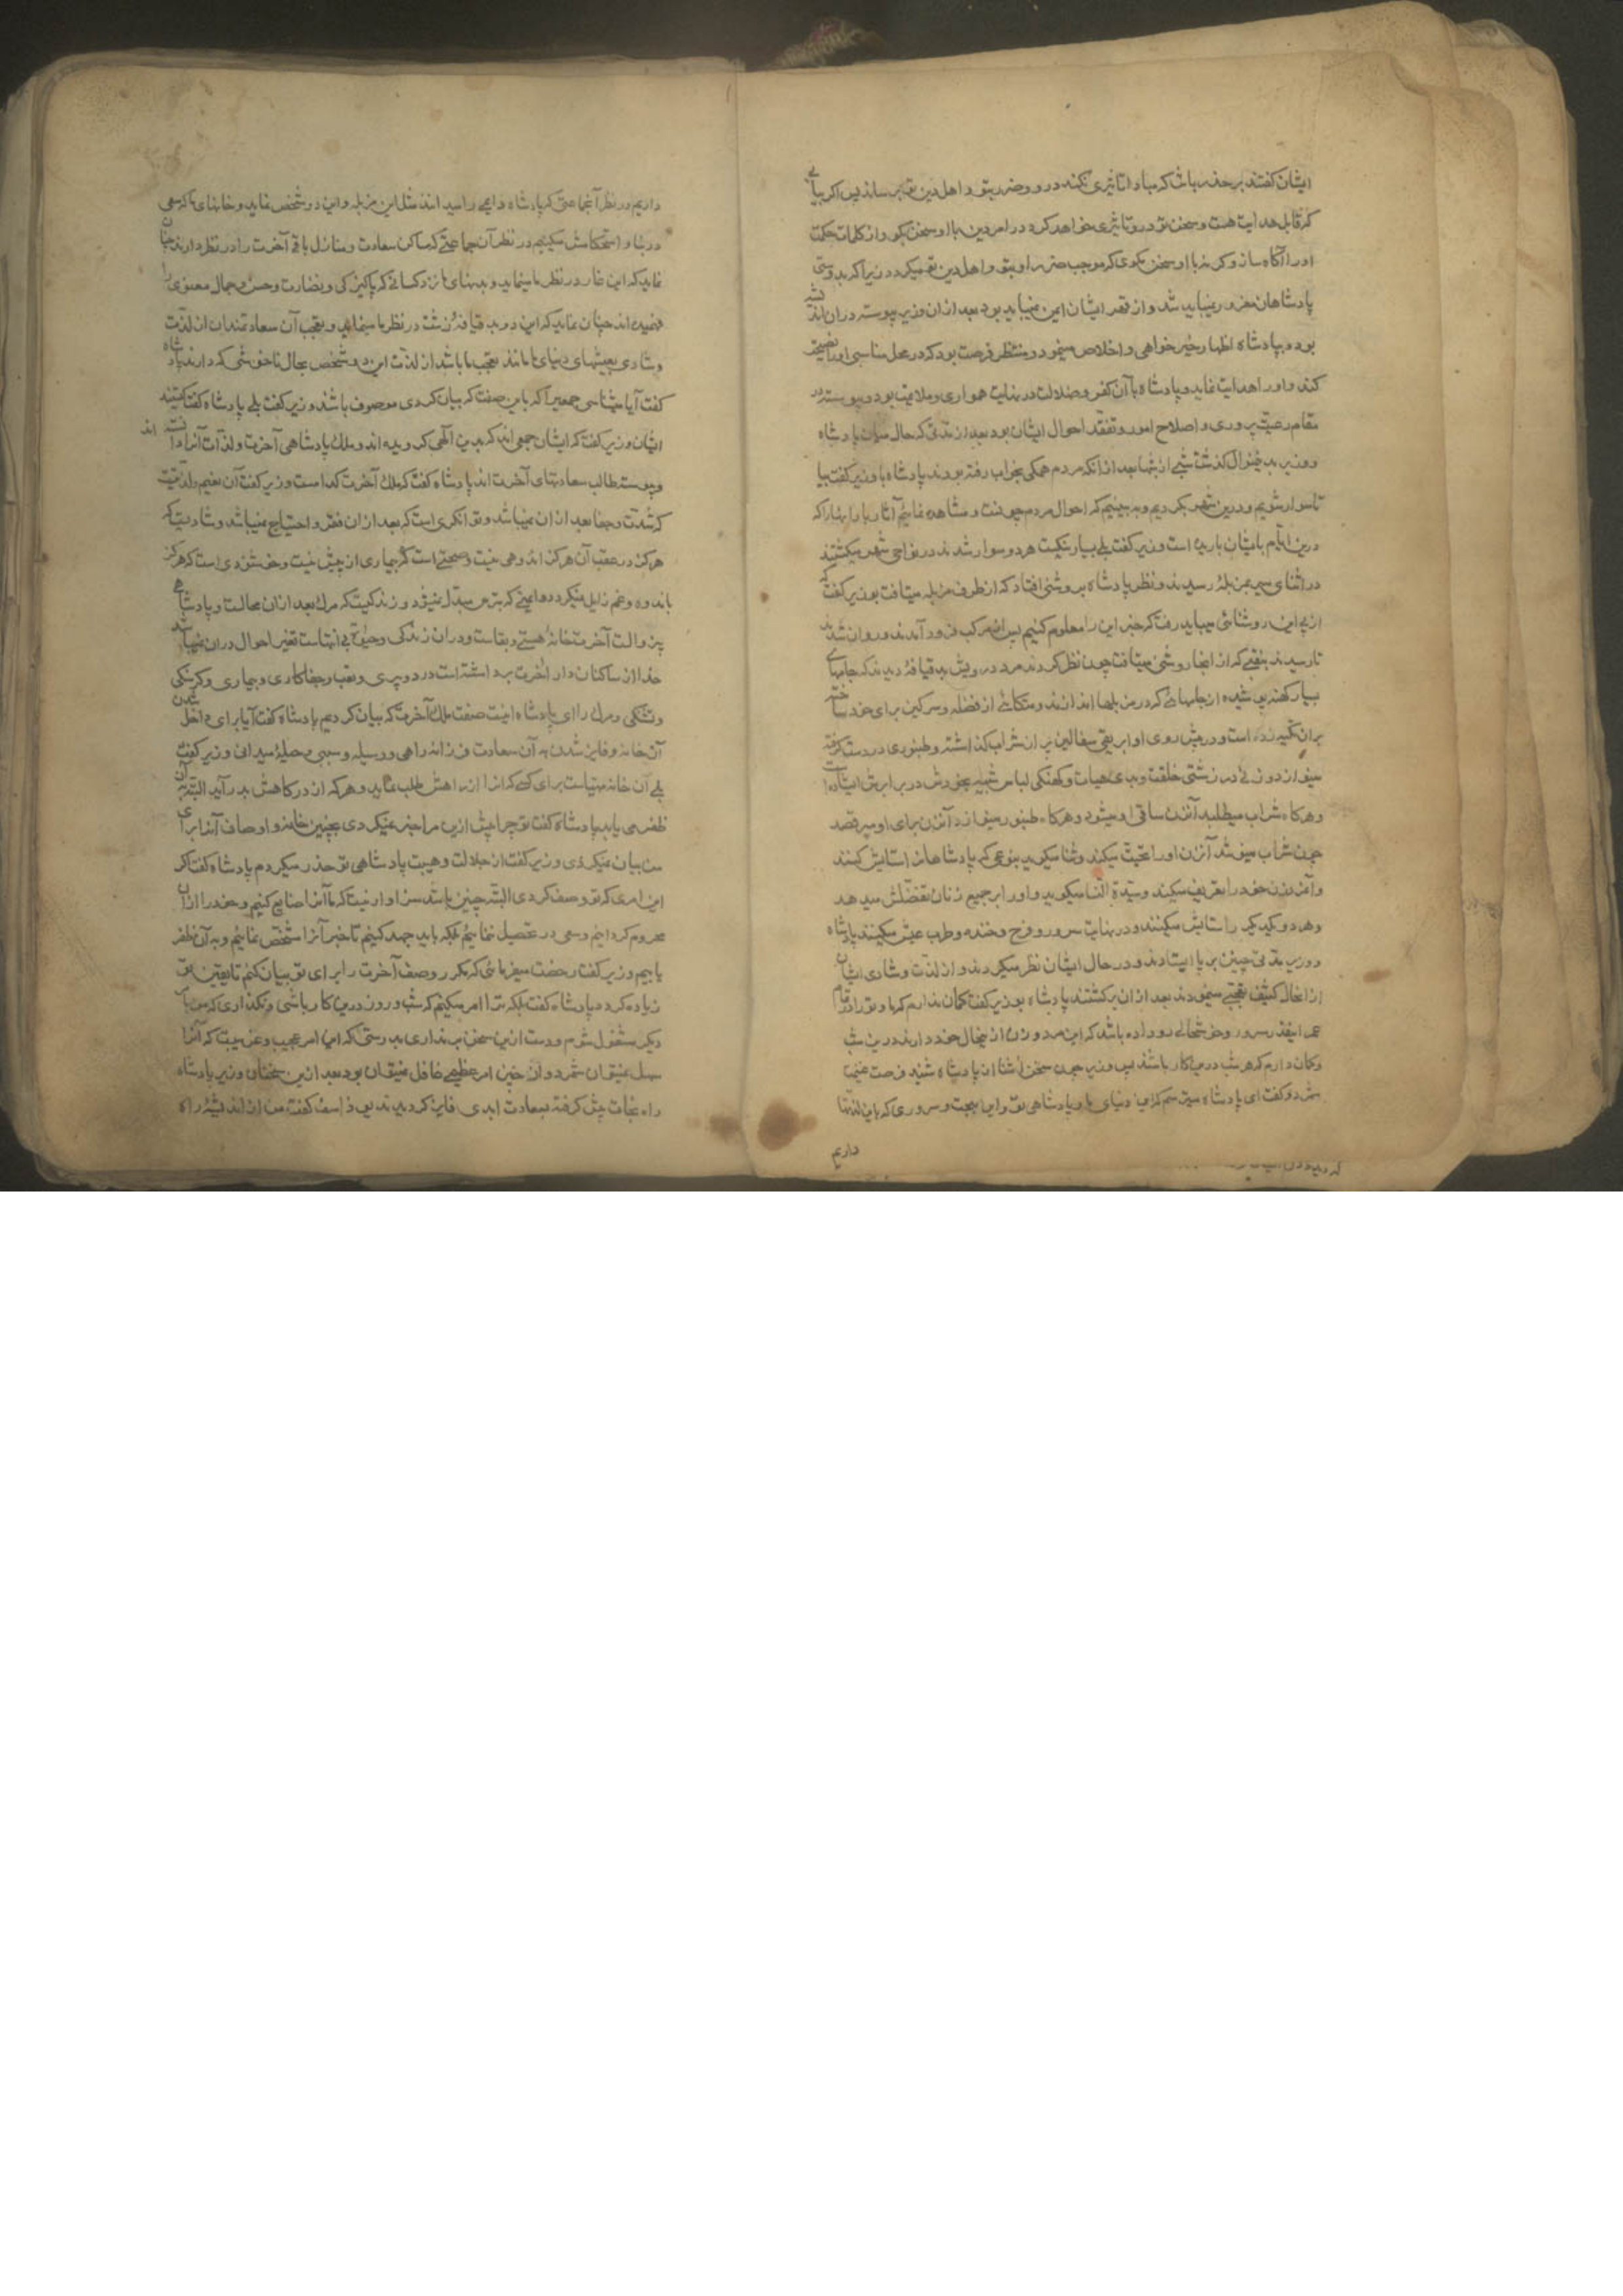 ایشان گفتند بر حذر باش که مبادا تاثیری نکند در و و ضرر بتو و اهل دین تو برساند پس اگر بیابی
که قابل هدایت هست و سخن تو در و تاثیری خواهد کرد در امر دین با او سخن بگو و از کلمات حکمت
او را آگاه ساز و گر نه با او سخن مگوی که موجب ضرر او بتو و اهل دین تو میگردد زیرا که بدوستی
پادشاهان مغرور نمیباید شد و از قهر ایشان ایمن نمیباید بود بعد از ان وزیر پیوسته در ان اندیشه
بود و بپادشاه اظهار خیر خواهی و اخلاص مینمود و منتظر فرصت بود که در محل مناسبی او را نصیحت
کند و او را هدایت نماید و پادشاه با آن کفر و ضلالت در نهایت همواری و ملایمت بود و پیوسته در
مقام رعیت پروری و اصلاح امور و تفقد احوال ایشان بود بعد از مدتی که حال میان پادشاه
و وزیر بدین منوال گذشت شبی از شبها بعد از انکه مردم همگی بخواب رفته بودند پادشاه با وزیر گفت بیا
تا سوار شویم و درین شهر بگردیم و ببینیم که احوال مردم چونست و مشاهده نمائیم آثار بارانها را که
درین ایام بایشان باریده است وزیر گفت بلی بسیار نیکست هر دو سوار شدند در نواحی شهر میگشتند
در اثنای سیر بمزبله رسیدند و نظر پادشاه بروشنی افتاد که از طرف مزبله میتافت بوزیر گفت که
از پی این روشنائی میباید رفت که خبر این را معلوم کنیم پس از مرکب فرود آمدند و روان شدند
تا رسیدند بنقبی که از انجا روشنی میتافت چون نظر کردند مرد درویش بد قیافهٔ دیدند که جامهای
بسیار کهنه پوشیده از جامهائی که در مزبلها اندازند و متکائی از فضله و سرگین برای خود ساخته
بران تکیه زده است و در پیش روی او ابریقی سفالین پر از شراب گذاشته و طنبوری در دست گرفته
مینوازد و زنی در زشتی خلقت و بدی هیات و کهنگی لباس شبیه بخودش در برابرش ایستاده است
و هرگاه شراب میطلبد آنزن ساقی او میشود و هرگاه طنبور مینوازد آنزن برای او میرقصد
چون شراب مینوشد آنزن او را تحیّت میکند و ثنا میگوید بنوعی که پادشاهان را ستایش کنند
و آنمرد زن خود را تعریف میکند و سیّدة النّسا میگوید و او را بر جمیع زنان تفضّل میدهد
و هر دو یکدیگر را ستایش میکنند و در نهایت سرور و فرح و خنده و طرب عیش میکنند پادشاه
و وزیر مدتی چنین بر پا ایستادند و در حال ایشان نظر میکردند و از لذّت و شادی ایشان
از انحال کثیف تعجّب مینمودند بعد از ان برگشتند پادشاه بوزیر گفت گمان ندارم که ما و تو را در تمام
عمر اینقدر سرور و خوشحالی رو داده باشد که این مرد و زن از ینحال خود دارند درین شب
و گمان دارم که هر شب درینکار باشند پس وزیر چون سخن آشنا از پادشاه شنید فرصت غنیمت
شمرد و گفت ای پادشاه میترسم که این دنیای ما و پادشاهی تو و این بهجت و سروری که باین لذتها
داریم
داریم در نظر آنجماعتی که پادشاه دائمی را میدانند مثل این مزبله و این دو شخص نماید و خانهای ما که سعی
در بنا و استحکامش میکنیم در نظر آن جماعتی که مساکن سعادت و منازل باقی آخرت را در نظر دارند چنان
نماید که این غار در نظر ما مینماید و بدنهای ما نزد کسانی که پاکیزگی و نضارت و حسن و جمال معنوی را
فهمیده اند چنان نماید که این دو بد قیافهٔ زشت در نظر ما مینماید و تعجب آن سعادتمندان از لذّت
و شادی بعیشهای دنیای ما مانند تعجب ما باشد از لذّت این دو شخص بحال ناخوشی که دارند پادشاه
گفت آیا میشناسی جمعی را که باین صفت که بیان کردی موصوف باشند وزیر گفت بلی پادشاه گفت کیستند
ایشان وزیر گفت که ایشان جمعی اند که بدین الهی گرویده اند و ملک پادشاهی آخرت و لذّات آنرا دانسته اند
و پیوسته طالب سعادتهای آخرت اند پادشاه گفت که ملک آخرت کدامست وزیر گفت آن نعیم و لذتیست
که شدّت و جفا بعد از ان نمیباشد و توانگری است که بعد از ان فقر و احتیاج نمیباشد و شادیست که
هرگز در عقب آن هرگز اندوهی نیست و صحتی است که بیماری از پیش نیست و خوشنودی است که هرگز
باندوه و غم زایل نمیگردد و ایمنی که بترس مبدّل نمیشود و زندگیست که مرگ بعد از ان محالست و پادشاهی
بیزوالست آخرت خانهٔ هستی و بقاست و در ان زندگی و حیوة بی انتهاست تغیر احوال در ان نمیباشد
خدا از ساکنان دار آخرت برداشته است درد و پیری و تعب و جفاکاری و بیماری و گرسنگی
و تشنگی و مرگ را ای پادشاه اینست صفت ملک آخرت که بیان کردیم پادشاه گفت آیا برای داخل شدن
آن خانه و فایز شدن به آن سعادت فرزانه راهی و وسیله و سببی و حیلهٔ میدانی وزیر گفت
بلی آن خانه مهیاست برای کسی که انرا از راهش طلب نماید و هر که از درگاهش بدر آید البته بآن
ظفر می یابد پادشاه گفت تو چرا پیش ازین مرا خبر نمیکردی بچنین خانه و اوصاف آنرا برای
من بیان نمیکردی وزیر گفت از جلالت و هیبت پادشاهی تو حذر میکردم پادشاه گفت اگر
این امری که تو وصف کردی البتّه چنین باشد سزاوار نیست که ما آنرا ضایع کنیم و خود را از ان
محروم گردانیم و سعی در تحصیل ننمائیم بلکه باید جهد کنیم تا خبر آنرا مشخّص نمائیم و به آن ظفر
یابیم وزیر گفت رخصت میفرمائی که مکرر وصف آخرت را برای تو بیان کنم تا یقین تو
زیاده گردد پادشاه گفت بلکه ترا امر میکنم که شب و روز درین کار باشی و نگذاری که من بامر
دیگر مشغول شوم و دست ازین سخن بر نداری بدرستی که این امر عجیب و غریبست که آنرا
سهل نمیتوان شمرد و از چنین امر عظیمی غافل نمیتوان بود بعد ازین سخنان وزیر پادشاه
راه نجات پیش گرفته بسعادت ابدی فایز گردیدند یوذاسف گفت من از اندیشهٔ راه